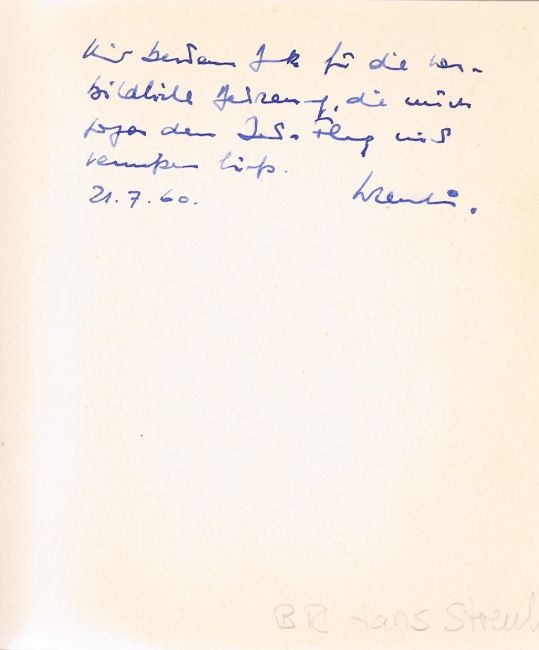 Mit bestem Dank für die vor-
bildliche Betreuung, die mich
sogar den Jet-Flug nicht
vermissen ließ.
21.7.60.
BR Hans Streul